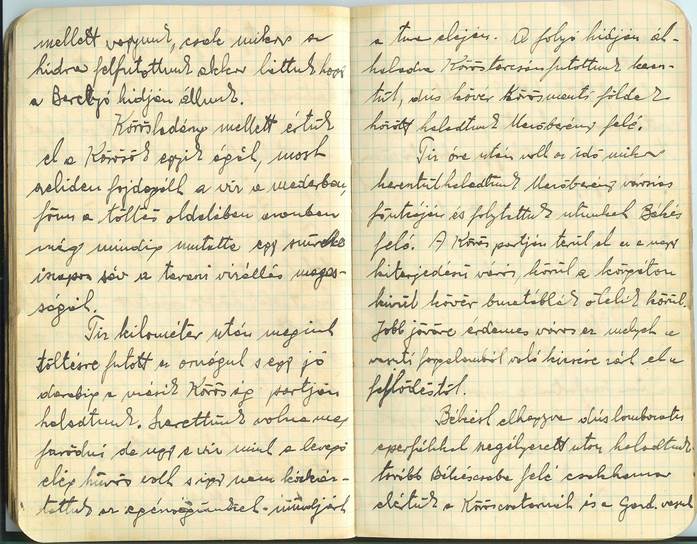 mellett vagyunk, csak mikor a
hidra felfutottunk akkor láttuk hogy
a Berettyó hidján állunk.
Körösladány mellett értük
el a Körösök egyik ágát, most
szeliden folydogált a víz a mederben,
fönn a töltés oldalában azonban
még mindig mutatta egy szürke
iszapos sáv a tavaszi vizállás magas-
ságát.
Tiz kilométer után megint
töltésre futott az országut s egy jó
darabig a másik Körös ág partján
haladtunk. Szerettünk volna meg
fürödni de ugy a víz mint a levegő
elég hüvös volt s igy nem kockáz-
tattuk az egészségünket - mindjárt
a tura elején. A folyó hidján át-
haladva Köröstarcsán futottunk keresz-
tül, dús kövér Körösmenti földek
között haladtunk Mezőberény felé.
Tiz óra után volt az idő mikor
keresztülhaladtunk Mezőberény városias
főutcáján és folytattuk utunkat Békés
felé. A Körös partján terül el ez a nagy
kiterjedésü város, körül a
kívül kövér buzatáblák ölelik körül.
Jobb jövőre érdemes város ez melyet a
vasuti forgalomból való kizárás zárt el a
fejlődéstől.
Békést elhagyva dúslombozatu
eperfákkal szegélyezett uton haladtunk
tovább Békéscsaba felé csakhamar
elértük a Köröscsatornát és a Gazd. vasut